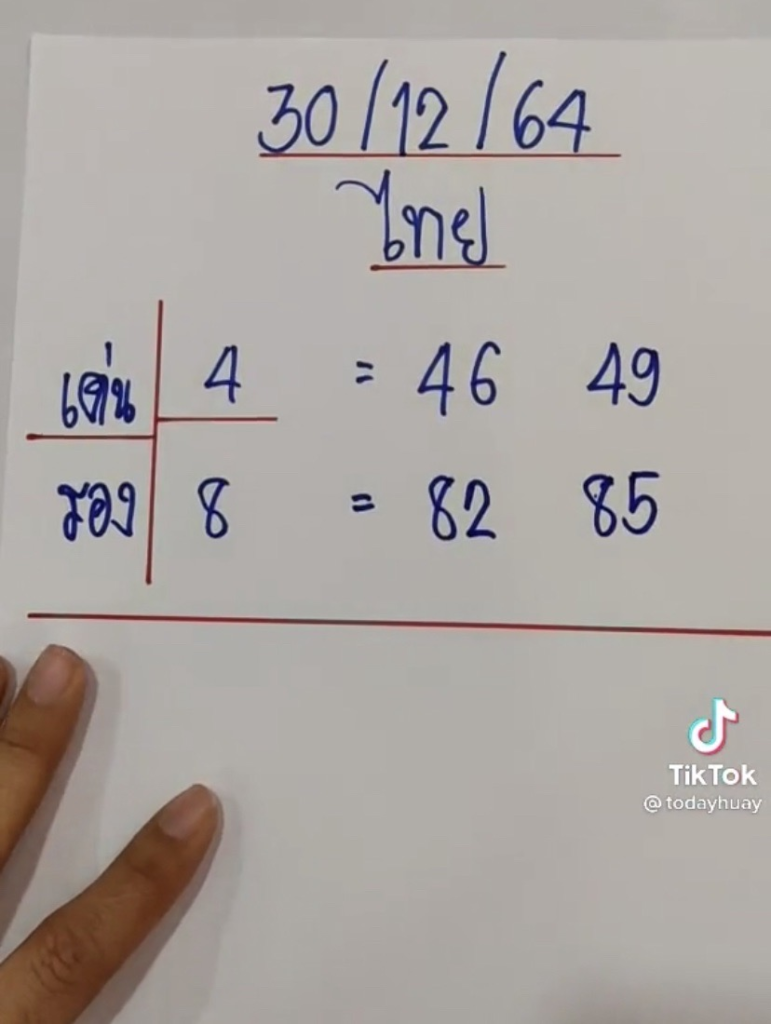 30/12/64
ไทย
เด่น 4 = 46 49
รอง 8 = 82 85
TikTok
@todayhuay